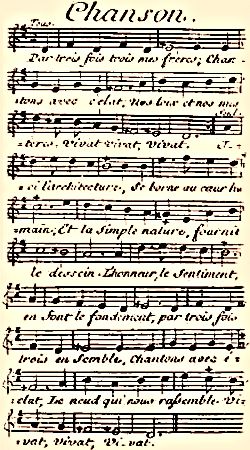 Chanson.
Tous.
Par trois fois trois mes freres; Chan-
-tons avec éclat, Nos loix et nos mis
Seul.
-teres, Vivat vivat, Vivat. I-
-ci l'architecture, Se borne au cœur hu
-main; Et la Simple nature, fournit
le dessein. L'honneur, le Sentiment,
en Sont le fondement, par trois fois
trois en Semble, Chantons avec é
-clat, Le neud qui nous rassemble. Vi-
-vat, Vivat, Vi-vat.